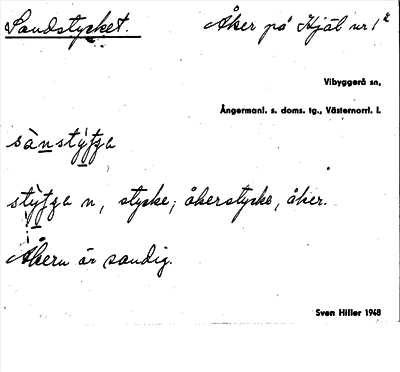 Sandstycket. Åker på Hjäl nr 1
Vibyggerå sn,
Ångermanl. s. doms. tg., Västernorrl. l.
stycke; åkerstycke, åker.
Åkern är sandig.
Sven Hiller 1948